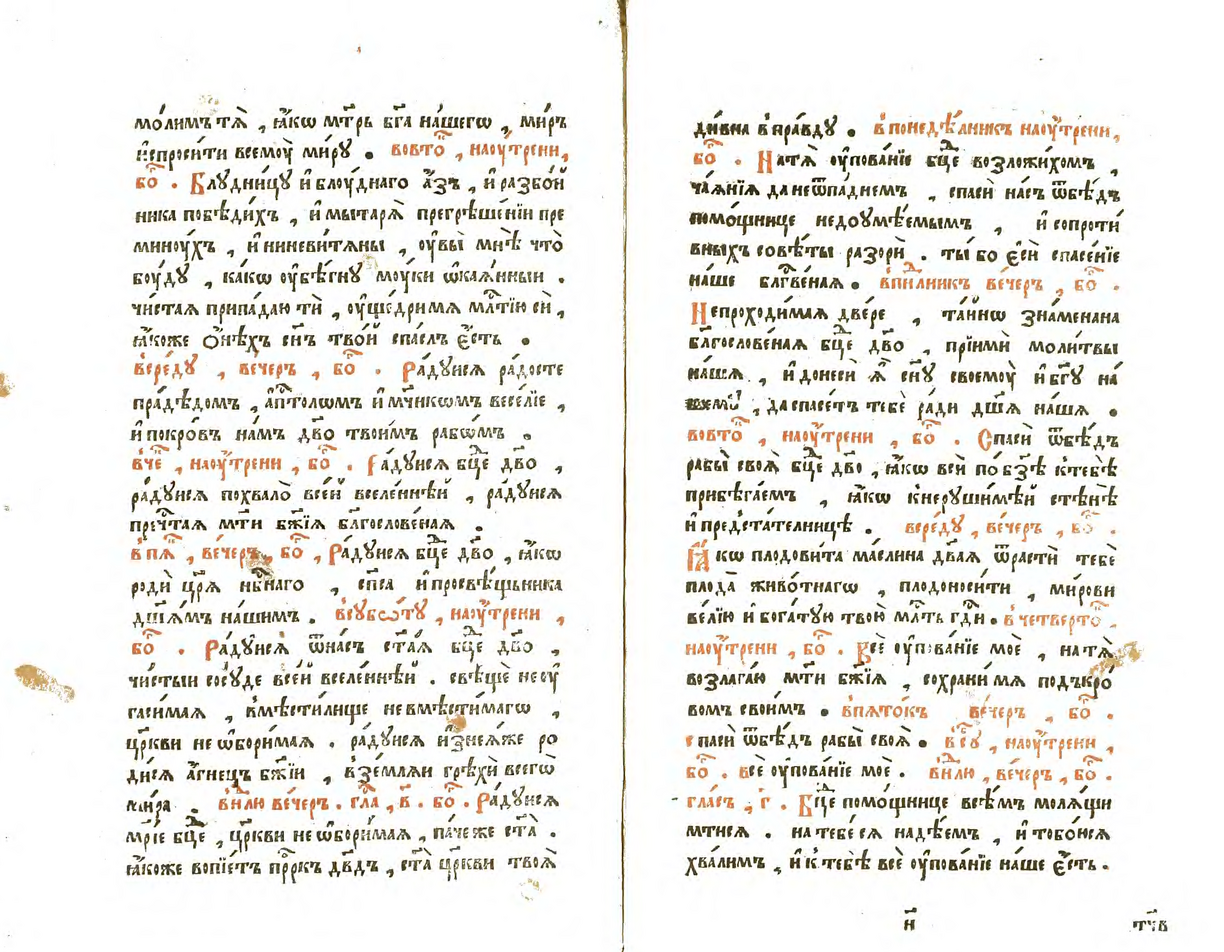 мо́лимъ тѧ̀ , ꙗ҆́кѡ мт҃рь бг҃а на́шегѡ , ми́ръ
и҆спроси́ти всемоꙋ̀ ми́рꙋ . вовто̑ , наоу҆́трени,
бо̑ . Блꙋдни́цꙋ и҆ блоꙋ́днаго а҆́зъ , и҆ разбо́й
ника побѣди́хъ , и҆ мытарѧ̀ прегрѣше́нїи пре
миноꙋ́хъ , и҆ ниневи́тѧны , оу҆вы̀ мнѣ̀ что̀
боꙋ́дꙋ , ка́кѡ оу҆бѣ́гнꙋ моꙋ́ки ѡ҆каѧ́нныи .
чи́стаѧ припа́даю тѝ , оу҆ще́дри мѧ мл҃тїю сѝ ,
ꙗ҆́коже ѻ҆нѣ́хъ сн҃ъ тво́й спа́слъ є҆́сть .
всре́дꙋ , ве́черъ , бо̑ . Ра́дꙋисѧ ра́досте
пра́дѣдомъ , а҆пⷭ҇толѡмъ и҆ мч҃икѡмъ весе́лїе ,
и҆ покро́въ на́мъ дв҃о твои́мъ рабѡ́мъ .
вче̑ , наоу҆́трени , бо̑ . Ра́дꙋисѧ бцⷣе дв҃о ,
ра́дꙋисѧ похвало̀ все́й вселе́ннѣй , ра́дꙋисѧ
пречⷭ҇таѧ мт҃и бж҃їѧ блг҃ослове́наѧ .
в пѧ̑ , ве́черъ , бо̑ , Ра́дꙋисѧ бцⷣе дв҃о , ꙗ҆́кѡ
родѝ цр҃ѧ нбⷭ҇наго , сп҃са и҆ просвѣ́щьника
дш҃ѧ́мъ на́шимъ . всꙋбѡ́тꙋ , наоу҆́трени ,
бо̑ . Ра́дꙋисѧ ѿна́съ ст҃а́ѧ бцⷣе дв҃о ,
чи́стыи сосꙋ́де все́й вселе́ннѣй . свѣщѐ не оу҆
гаси́маѧ , вмѣсти́лище невмѣсти́магѡ ,
цр҃кви не ѡ҆бори́маѧ . ра́дꙋисѧ и҆знеѧ́же ро
ди́сѧ а҆́гнецъ бж҃їи , взе́млѧи грѣхѝ всегѡ̀
ми́ра . вн҃лю ве́черъ . гла̑ , в҃ . бо̑ . Ра́дꙋисѧ
мр҃їе бцⷣе , цр҃кви не ѡ҆бори́маѧ , па́че же ст҃а̀ .
ꙗ҆́коже вопїе́тъ прⷪ҇ркъ дв҃дъ , ст҃а̀ цр҃кви твоѧ̀
ди́вна впра́вдꙋ . впонедѣ́лникъ наоу҆́трени,
бо̑ . На тѧ̀ оу҆пова́нїе бцⷣе возложи́хомъ ,
ча́ѧнїѧ да не ѿпаднемъ , спасѝ на́съ ѿбѣ́дъ
помо́щнице недоꙋмѣ́емымъ , и҆ сопроти́
вныхъ совѣ́ты разорѝ . ты́ бо є҆сѝ спасе́нїе
на́ше блг҃ве́наѧ . впнⷣлникъ ве́черъ , бо̑ .
Непроходи́маѧ две́ре , та́йнѡ зна́менана
благослове́наѧ бцⷣе дв҃о , прїимѝ моли́твы
на́шѧ , и҆ донесѝ ѧ҆̀ сн҃ꙋ своемоꙋ̀ и҆ бг҃ꙋ на́
шемꙋ̀ , да спасе́тъ тебѐ ра́ди дш҃ѧ на́шѧ .
вовто̑ , наоу҆́трени , бо̑ . Спасѝ ѿбѣ́дъ
рабы̀ своѧ̀ бцⷣе дв҃о , ꙗ҆́кѡ всѝ по бз҃ѣ ктебѣ̀
прибѣга́емъ , ꙗ҆́кѡ кнерꙋши́мѣй стѣнѣ̀
и҆ предста́телницѣ . всре́дꙋ , ве́черъ , бо̑ .
Ꙗ҆́кѡ плодови́та ма́слина дв҃аѧ ѿрастѝ тебѐ
плода̀ живо́тнагѡ , плодоноси́ти , ми́рови
ве́лїю и҆ бога́тꙋю твою̀ мл҃ть гд҃и . в четверто̑ .
наоу҆́трени , бо̑ . Всѐ оу҆пова́нїе моѐ , на тѧ̀
возлага́ю мт҃и бж҃їѧ , сохрани́ мѧ подъкро́
вомъ свои́мъ . впѧто́къ ве́черъ , бо̑ .
спасѝ ѿбѣ́дъ рабы̀ своѧ̀ . всꙋ̑ , наоу҆́трени ,
бо̑ . всѐ оу҆пова́нїе моѐ . вн҃лю , ве́черъ , бо̑ .
гла́съ , г҃ . Бцⷣе помо́щнице всѣ́мъ молѧ́щи
мтисѧ . на тебе́ сѧ надѣ́емъ , и҆ тобо́исѧ
хва́лимъ , и҆ ктебѣ̀ всѐ оу҆пова́нїе на́ше є҆́сть .
н҃